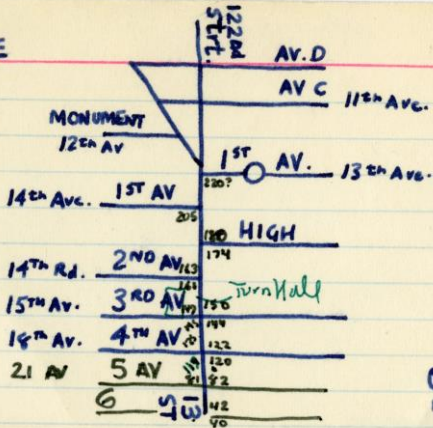 E
122nd
Strt.
AV. D
AV C 11th Ave.
MONUMENT
12th AV
1ST AV. 13th Ave.
220?
14th Ave. 1ST AV
205
180 HIGH
174
14Th Rd. 2ND AV 163
161
Turn Hall
15Th Av. 3RD AV 150
144
18th Av. 4TH AV 122
120
21 AV 5 AV 81 82
6 13 ST 42
40